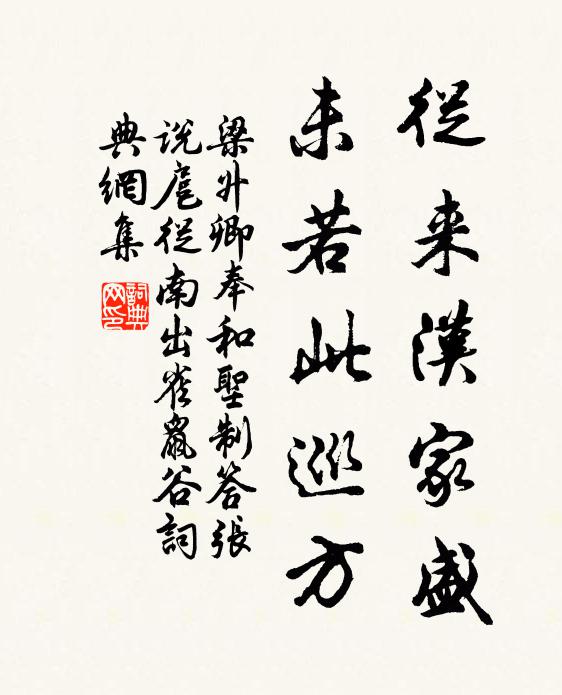 從来漢家盛
未若此巡方
梁升卿奉和聖制答張
説扈從南出雀鼠谷詞
典網集
詞典網印